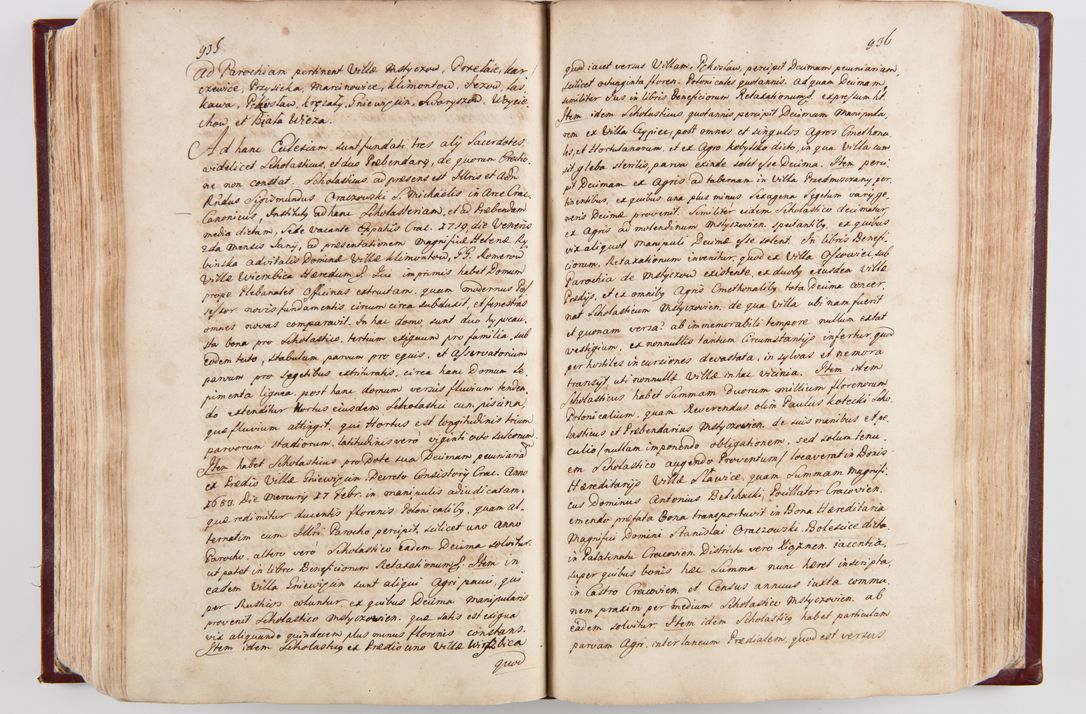 935
Ad Parochiam pertinent Villæ Mstyczow, Krzelaie, Kar
czowice, Przysieka, Marcinowice, Klimontow, Jezow, Las
kawa, Pękosław, Krężoły, Gniewięcin, Swaryszow, Woycie
chow, et Biała Wieza.
Ad hanc Ecclesiam sunt fundati tres alÿ Sacerdotes,
videlicet Scholasticus, et duo Præbendarÿ, de quorum Erectio
ne non constat. Scholasticus ad præsens est Illris et Adm
Rndus Sigismundus Oraszowski S. Michaelis in Arce Crac.
Canonicus, Institutg ad hanc Scholasteriam, et ad Præbendam
medio dictam, Sede vacante Eppatus Crac. 1719 die Veneris
2da Mensis Junÿ, ad præsentationem Magnificæ Helenæ Ry
binska advitalis Dominæ Villæ Klimontow, GG. Komerow
Villæ Wierzbica Hæredum. Qui imprimis habet Domum
prope Plebanales Officinas extructam, quam modernus Pos
sessor novis fundamentis circum circa subduxit, et fenestras
omnes novas comparavit. In hac domo, sunt duo hypocau
sta bona pro Scholastico, tertium exiguum pro familia, sub
eodem tecto, stabulum parvum pro equis, et Asservatorium
parvum pro segetibus extrituratis, circa hanc Domum se
pimenta lignea, post hanc domum versus fluvium tenden
do extenditur Hortus eiusdem Scholastici cum piscina,
quæ fluvium attingit, qui Hortus est longitudinis trium
parvorum stadiorum, latitudinis vero viginti octo sulcorum.
Item habet Scholasticus pro Dote sua Decimam pecuniaria
ex Prædio Villæ Gniewięcin Decreto Consistorÿ Crac. Anno
1683. Die Mercurÿ 17 Febr. in manipulis adiudicatam,
quæ redimitur ducentis florenis Polonicalibg, quam al
ternatim cum Illri Parocho percipit, scilicet uno Anno
Parocho, altero vero Scholastico eadem Decima solvitur,
ut patet in libro Beneficiorum Retaxationum. Item in
eadem Villa Gniewięcin sunt aliqui Agri pauci, qui
per Rusticos coluntur, ex quibus Decima Manipularis
provenit Scholastico Mstyczovien. quæ satis est exigua
vix aliquando quindecem plus minus florenis constans.
Item idem Scholasticg ex Prædio uno Villæ Wirzbica
quod
936
quod iacet versus Villam, Pękosław, percipit Decimam pecuniariam,
scilicet octuaginta floren. Polonicales quotannis. Ad quam Decimam
similiter Jus in libris Beneficiorum Retaxationum expressum ht.
Item idem Scholasticus quotannis percipit Decimam Manipula
rem ex Villa Czepiec, post omnes et singulos Agros Cmethona
les, et Hortulanorum, et ex Agro Kobylsko dicto, in qua Villa cum
sit gleba sterilis, parva exinde solet esse Decima. Item perci
pit Decimam ex Agris ad tabernam in Villa Przedmoszany per
tinentibus, ex quibus una plus minus sexagena segetum varÿ ge
neris Decimæ provenit. Similiter eidem Scholastico decimatur
ex Agris ad molendinum Mstyczovien. spectantibg, ex quibus
vix aliquot manipuli Decimæ esse solent. In libris Benefi
ciorum, Retaxationum invenitur, quod ex Villa Ossowiec, sub
Parochia de Mstyczow existente, ex duobg eiusdem Villæ
Prædÿs, et ex omnibg Agris Cmethonalibg tota Decima concer
nat Scholasticum Mstyczovien. de qua Villa ubi nam fuerit
et quonam versa? ab immemorabili tempore nullum extat
vestigium, ex nonnullis tantum Circumstantÿs infertur, quod
per hostiles incursiones devastata, in sylvas et nemora
transÿt, uti nonnullæ Villæ in hac vicinia. Item idem
Scholasticus habet Summam Duorum millium florenorum
Polonicalium, quam Reverendus olim Paulus Kotecki Scho
lasticus et Præbendarius Mstyczovien. de suis manibus et Pe
culio /nullam imponendo obligationem, sed solum tenu
em Scholastico augendo Proventum/ locaverat in Bonis
Hæreditarÿs Villæ Sławice, quam Summam Magnifi
cus Dominus Antonius Bełchacki, Pocillator Cracovien.
emendo præfata Bona transportavit in Bona Hæreditaria
Magnifici Domini Stanislai Oraszowski, Bolescice dicta
in Palatinatu Cracovien. Districtu vero Xiążnen. iacentia,
super quibus bonis hæc Summa nunc hæret inscripta,
in Castro Cracovien. et Census annuus iuxta commu
nem praxim per medium Scholastico Mstyczovien. ab
eadem solvitur. Item idem Scholasticg habet particulam
parvam Agri, inter laneum Prædialem, quod est versus